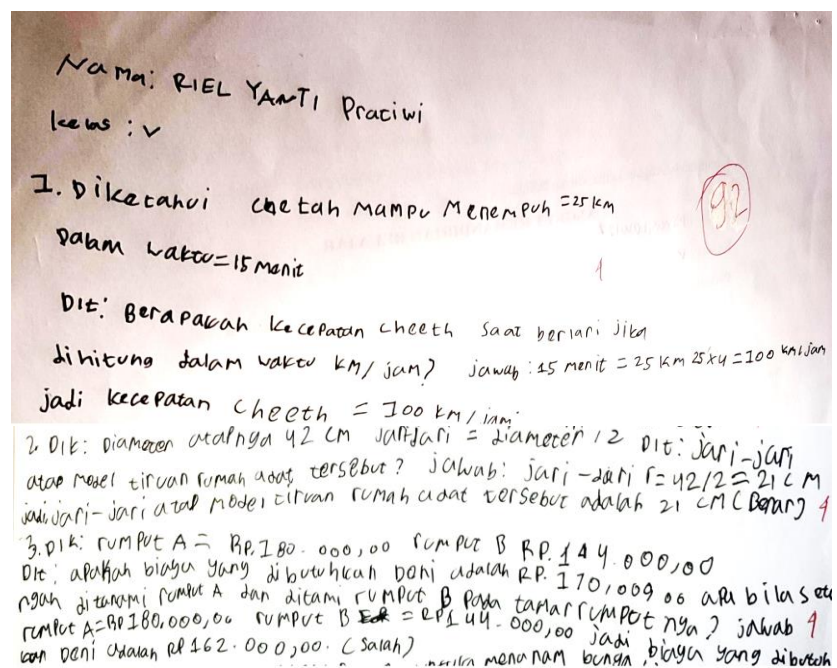 Nama: RIEL YANTI Pratiwi
kelas : V
92
1. Diketahui chetah mampu menempuh = 25 km
Dalam waktu = 15 menit
1
Dit: Berapakah kecepatan cheeth saat berlari jika
dihitung dalam waktu km/jam? jawab : 15 menit = 25 km 25x4 = 100 km/jam
jadi kecepatan cheeth = 100 km/jam.
2. Dik: Diameter atapnya 42 cm jari-jari = diameter / 2 Dit: jari-jari
atap model tiruan rumah adat tersebut? jawab: jari-jari r = 42/2 = 21 cm
jadi, jari-jari atap model tiruan rumah adat tersebut adalah 21 cm (Benar) 4
3. Dik: rumput A = RP. 180.000,00 rumput B RP. 144.000,00
Dit: apakah biaya yang dibutuhkan Doni adalah RP. 170,000 00 apa bila sete
ngah ditanami rumput A dan ditami rumput B pada taman rumputnya? jawab 4
rumput A = RP 180,000,00 rumput B = RP 144.000,00 jadi biaya yang dibutuh
kan Doni adalah RP 162.000,00. (Salah)
menanam bunga